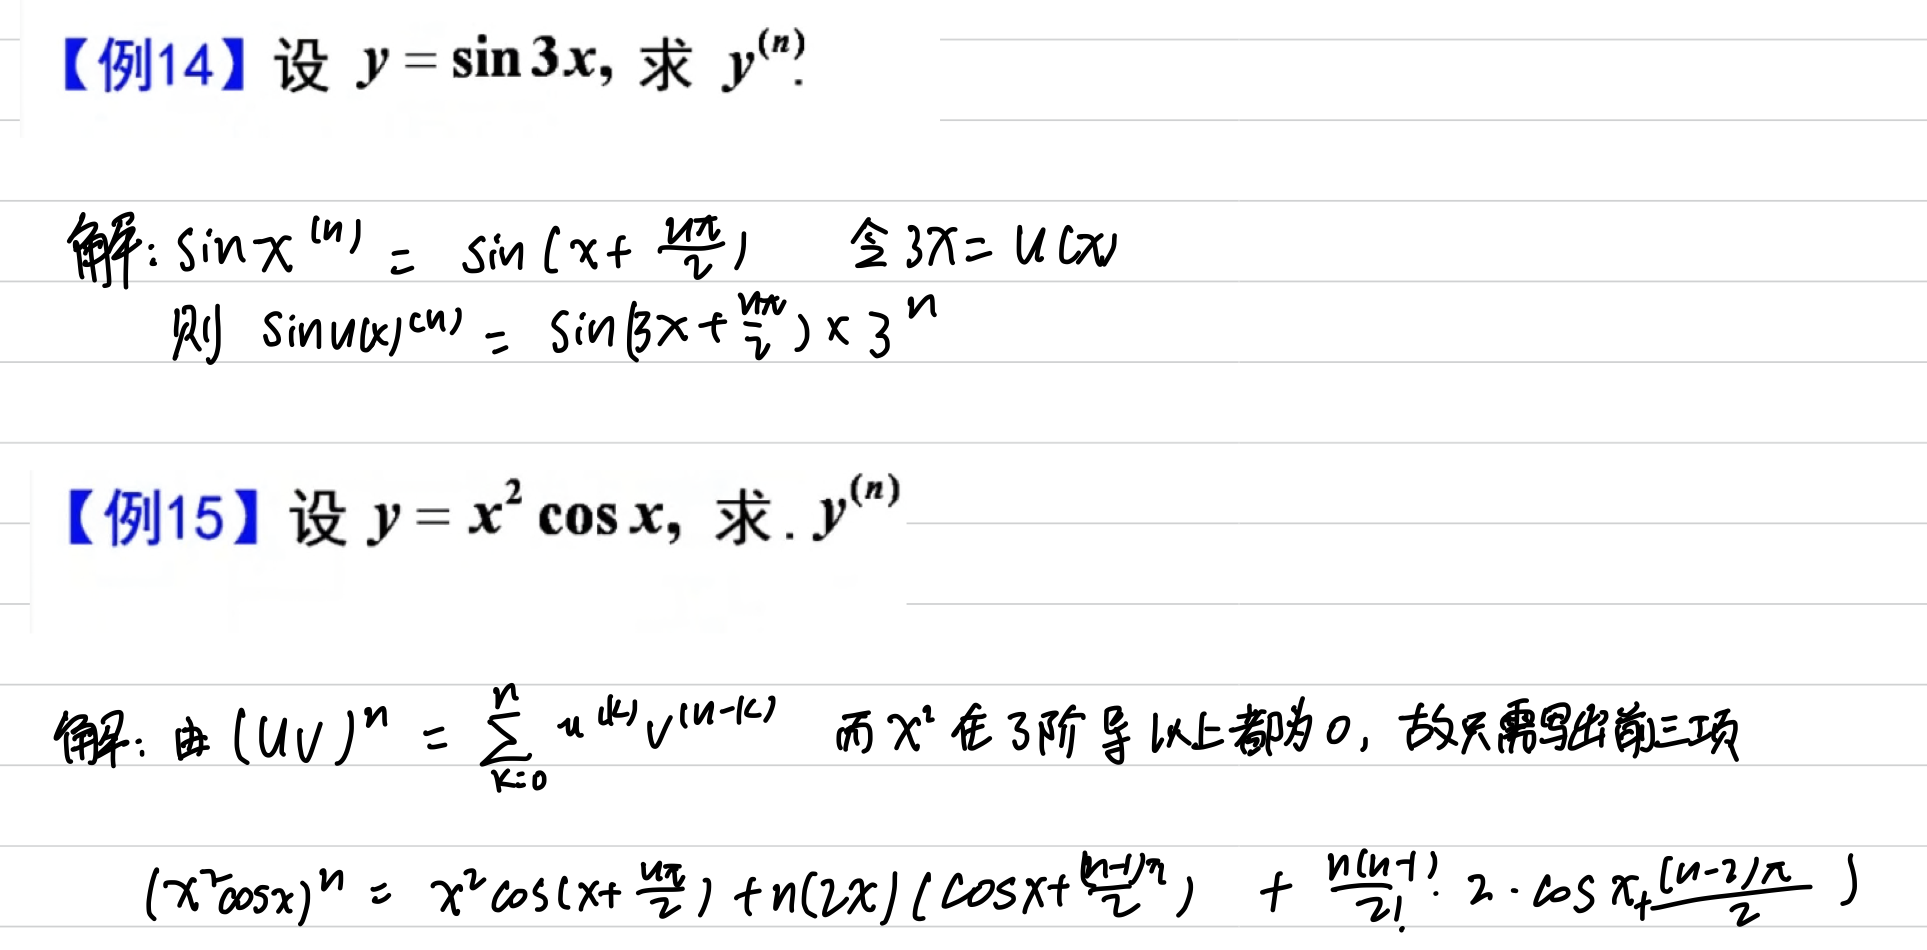 【例14】设 y = sin 3x, 求 y⁽ⁿ⁾.
解: sin x⁽ⁿ⁾ = sin(x + nπ/2) 令 3x = u(x)
则 sin u(x)⁽ⁿ⁾ = sin(3x + nπ/2) × 3ⁿ
【例15】设 y = x² cos x, 求. y⁽ⁿ⁾
解: 由 (uv)ⁿ = ∑ₖ₌₀ⁿ u⁽ᵏ⁾ v⁽ⁿ⁻ᵏ⁾ 而 x² 在 3阶导以上都为0, 故只需写出前三项
(x²cosx)ⁿ = x² cos(x + nπ/2) + n(2x)(cosx + (n-1)π/2) + n(n-1)/2! · 2 · cos x + (n-2)π/2 )